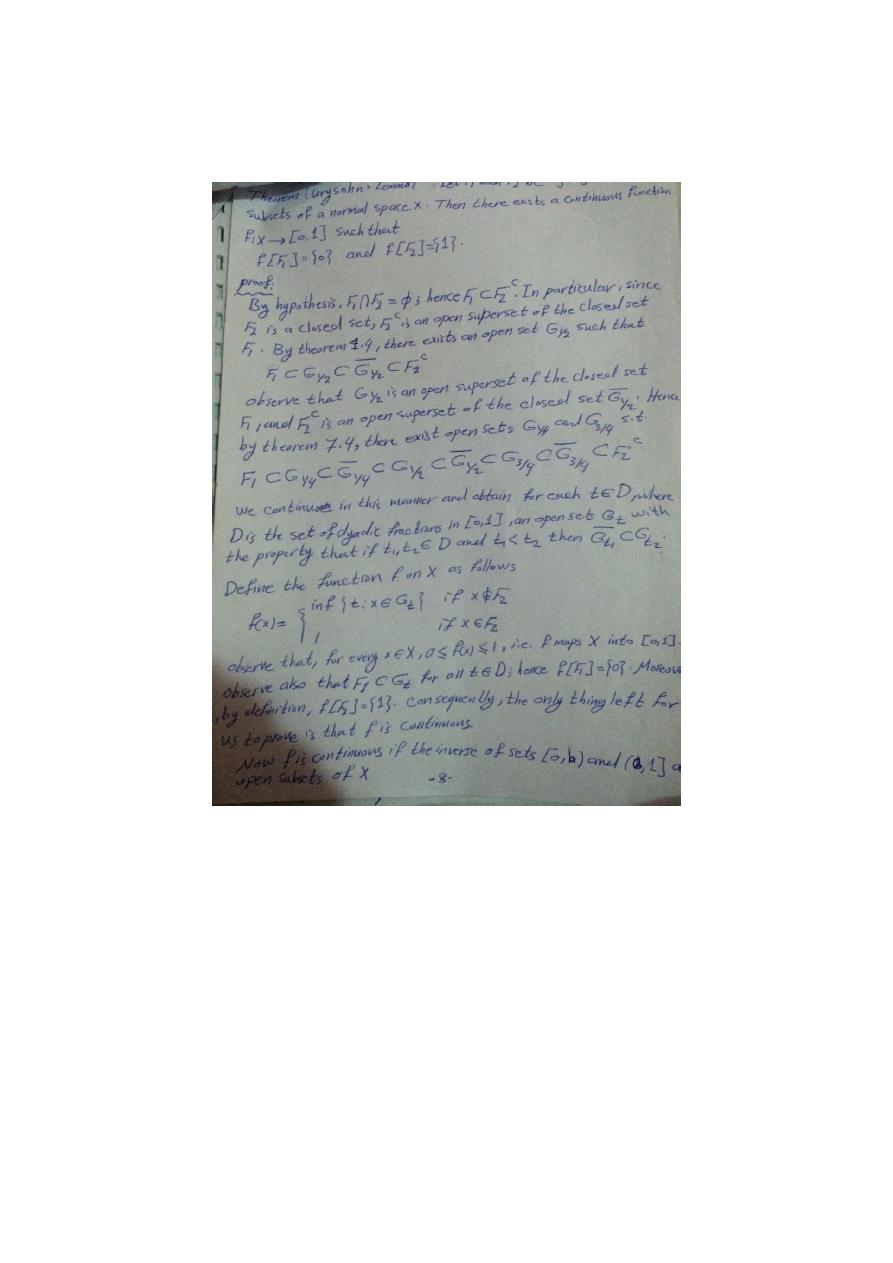 Theorem (Urysohn's Lemma)
subsets of a normal space X. Then there exists a continuous function
f: X → [0,1] such that
f[F₁]={0} and f[F₂]={1}.
proof:
By hypothesis, F₁∩F₂ = φ; hence F₁ ⊂ F₂ᶜ. In particular, since
F₂ is a closed set, F₂ᶜ is an open superset of the closed set
F₁. By theorem 7.4, there exists an open set G½ such that
F₁ ⊂ G½ ⊂ G̅½ ⊂ F₂ᶜ
observe that G½ is an open superset of the closed set
F₁, and F₂ᶜ is an open superset of the closed set G̅½. Hence
by theorem 7.4, there exist open sets G¼ and G¾ s.t.
F₁ ⊂ G¼ ⊂ G̅¼ ⊂ G½ ⊂ G̅½ ⊂ G¾ ⊂ G̅¾ ⊂ F₂ᶜ
we continue in this manner and obtain for each t∈D, where
D is the set of dyadic fractions in [0,1], an open set Gₜ with
the property that if t₁,t₂∈D and t₁<t₂ then G̅t₁ ⊂ Gt₂.
Define the function f on X as follows
f(x)= { inf {t: x∈Gₜ} if x∉F₂
1 if x∈F₂
observe that, for every x∈X, 0≤f(x)≤1, i.e. f maps X into [0,1].
observe also that F₁ ⊂ Gₜ for all t∈D; hence f[F₁]={0}. Moreove
, by definition, f[F₂]={1}. Consequently, the only thing left for
us to prove is that f is continuous.
Now f is continuous if the inverse of sets [0,b) and (a,1] a
open subsets of X
-8-